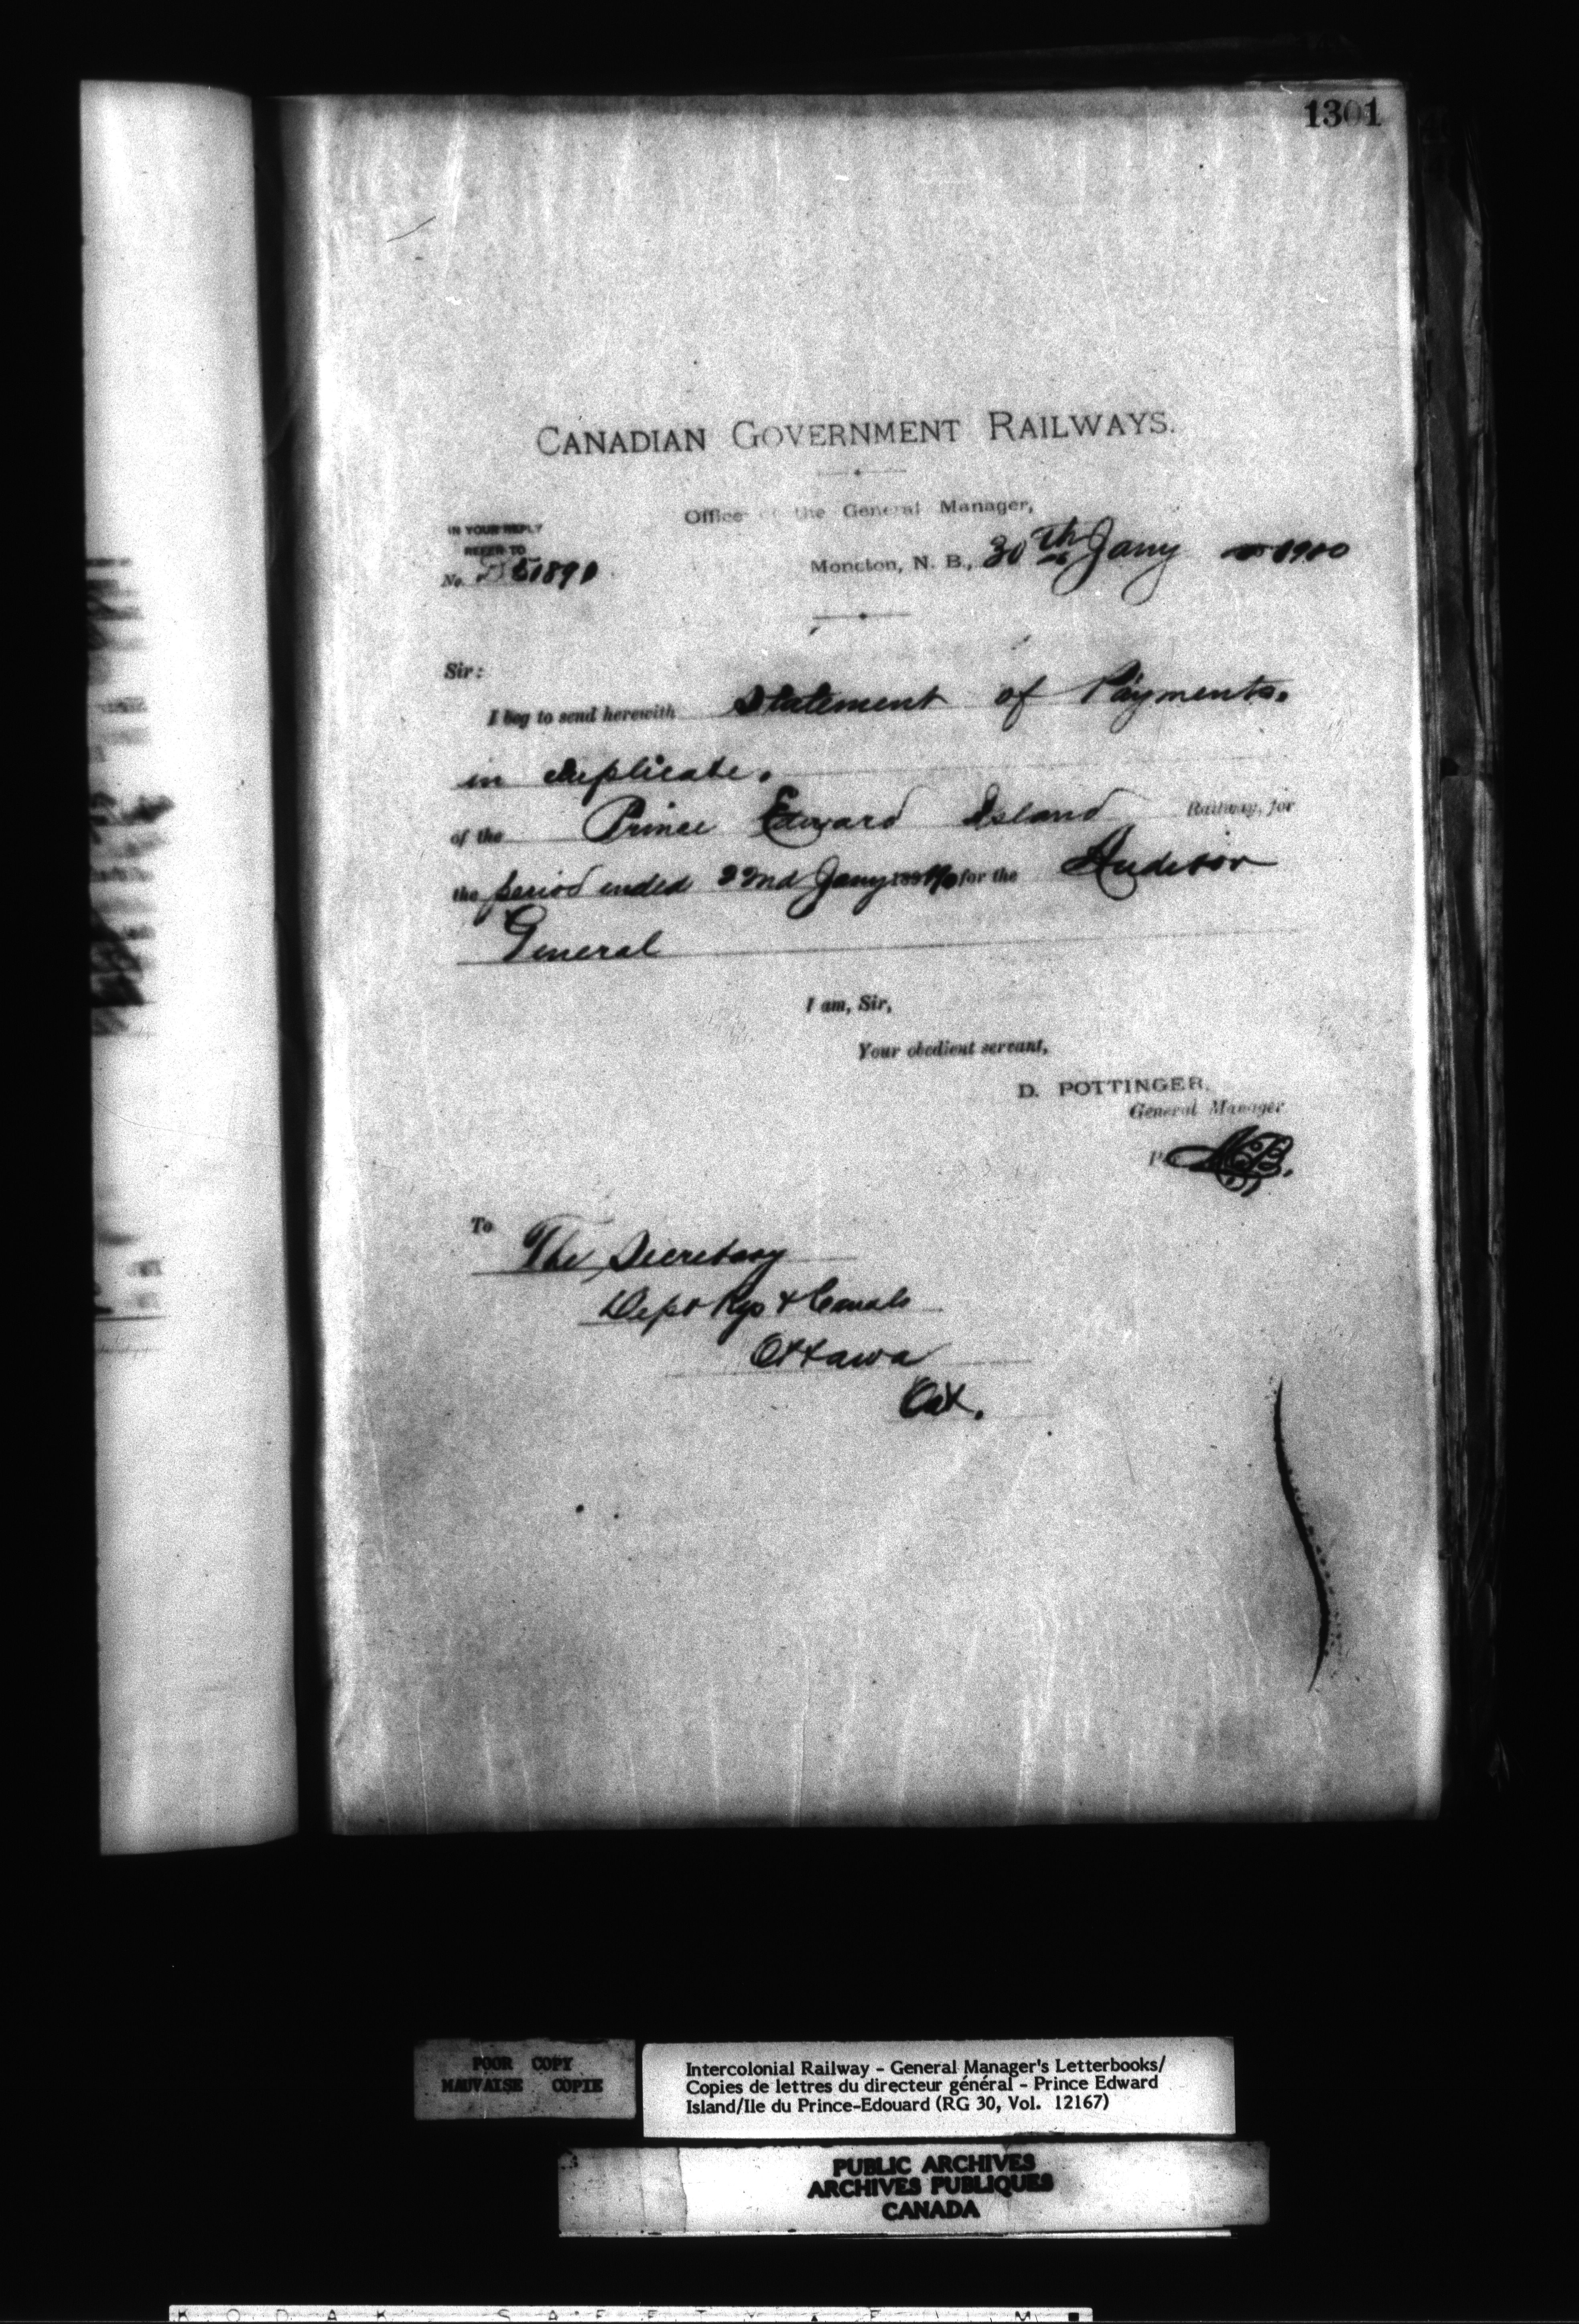 1301
CANADIAN GOVERNMENT RAILWAYS.
Office of the General Manager,
IN YOUR REPLY
REFER TO
No. 51891
Moncton, N. B., 30th Jany 1900
Sir:
I beg to send herewith Statement of Payments.
in duplicate.
of the Prince Edward Island Railway, for
the period ended 22nd Jany for the Auditor
General
I am, Sir,
Your obedient servant,
D. POTTINGER,
General Manager
To The Secretary
Dept Rys & Canals
Ottawa
Ont.
POOR COPY
MAUVAISE COPIE
Intercolonial Railway - General Manager's Letterbooks/
Copies de lettres du directeur général - Prince Edward
Island/Ile du Prince-Edouard (RG 30, Vol. 12167)
PUBLIC ARCHIVES
ARCHIVES PUBLIQUES
CANADA